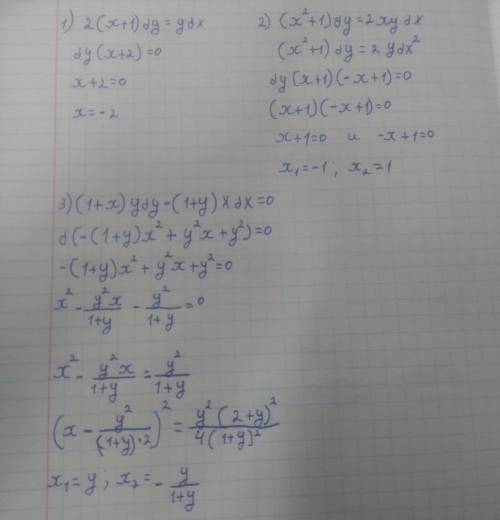 1) 2(x+1)dy = ydx
dy(x+2)=0
x+2=0
x=-2
2) (x²+1)dy=2xydx
(x²+1)dy=2ydx²
dy(x+1)(-x+1)=0
(x+1)(-x+1)=0
x+1=0 и -x+1=0
x₁=-1; x₂=1
3)(1+x)ydy-(1+y)xdx=0
d(-(1+y)x²+y²x+y²)=0
-(1+y)x²+y²x+y²=0
x² - y²x/(1+y) - y²/(1+y) = 0
x² - y²x/(1+y) = y²/(1+y)
(x - y²/((1+y)·2))² = y²(2+y)²/(4(1+y)²)
x₁=y; x₂=- y/(1+y)